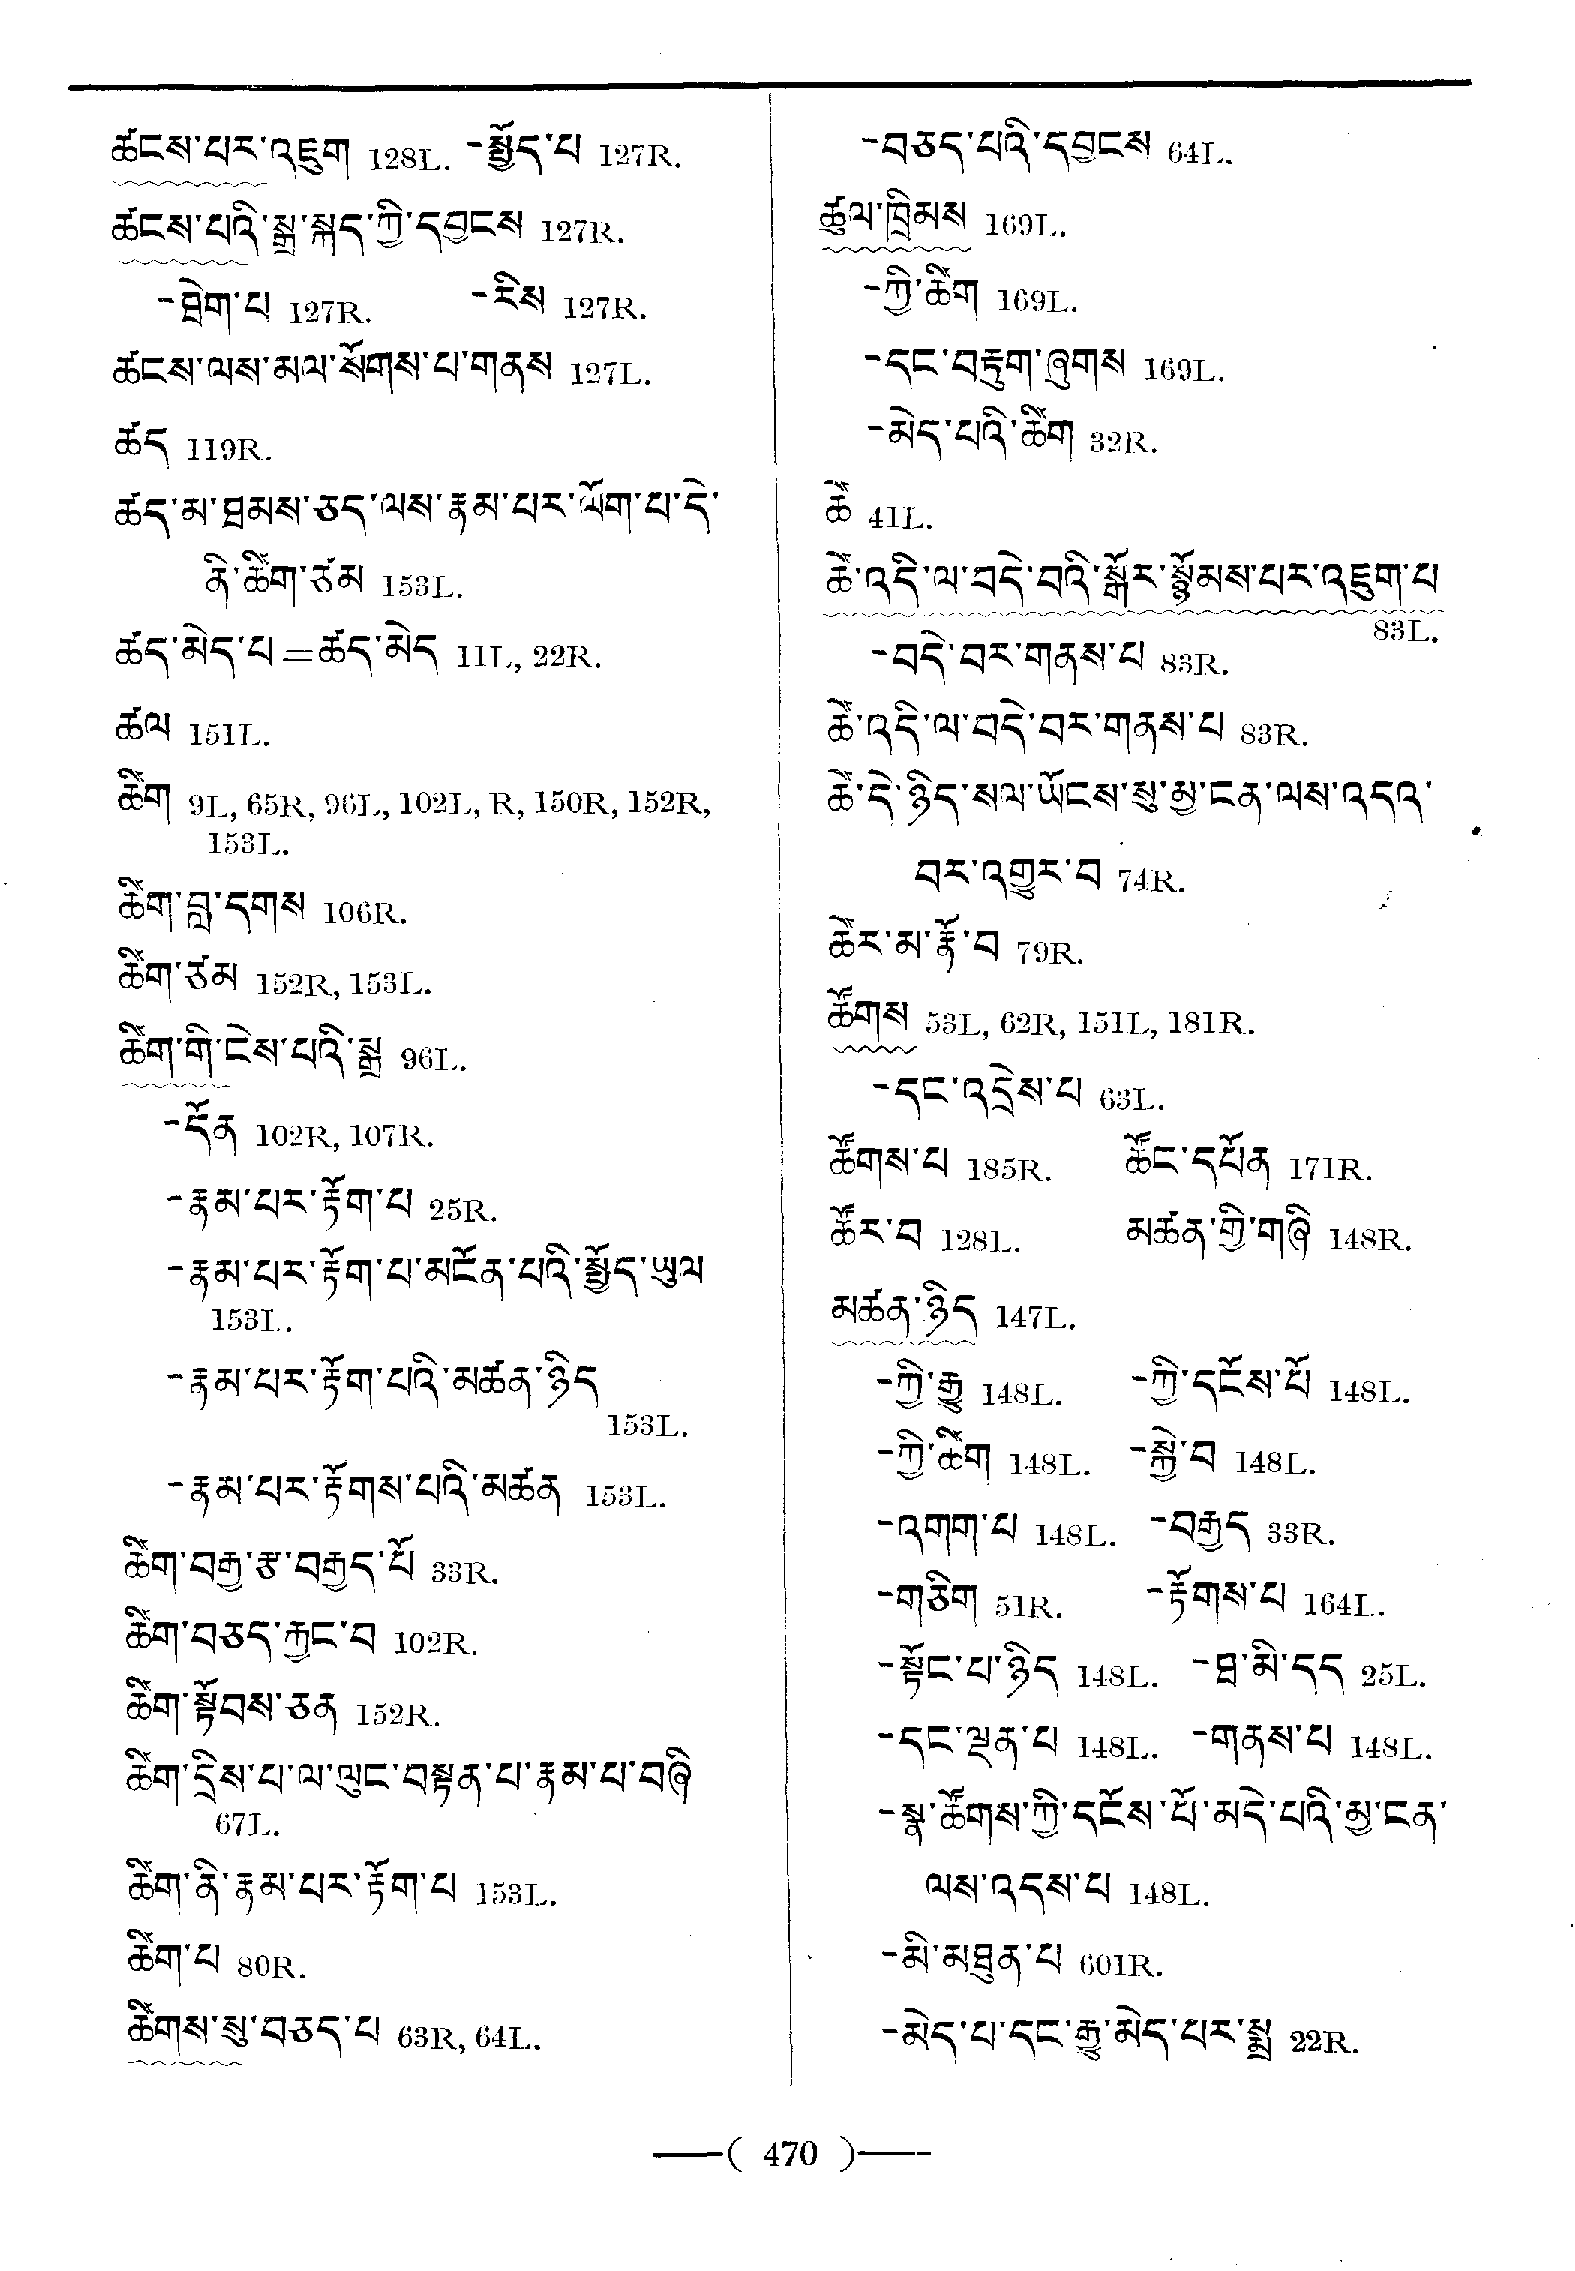 ཚངས་པར་འཇུག 128L. -སྤྱོད་པ 127R.
ཚངས་པའི་སྒྲ་སྐད་ཀྱི་དབྱངས 127R.
-ཐེག་པ 127R. -རིས 127R.
ཚངས་ལས་མལ་སོགས་པ་གནས 127L.
ཚད 119R.
ཚད་མ་ཐམས་ཅད་ལས་རྣམ་པར་ལོག་པ་དེ་
ནི་ཚིག་ཙམ 153L.
ཚད་མེད་པ=ཚད་མེད 11L, 22R.
ཚལ 151L.
ཚིག 9L, 65R, 96L, 102L, R, 150R, 152R,
153L.
ཚིག་བླ་དགས 106R.
ཚིག་ཙམ 152R, 153L.
ཚིག་གི་ངེས་པའི་སྒྲ 96L.
-དོན 102R, 107R.
-རྣམ་པར་རྟོག་པ 25R.
-རྣམ་པར་རྟོག་པ་མངོན་པའི་སྤྱོད་ཡུལ
153L.
-རྣམ་པར་རྟོག་པའི་མཚན་ཉིད
153L.
-རྣམ་པར་རྟོགས་པའི་མཚན 153L.
ཚིག་བརྒྱ་རྩ་བརྒྱད་པོ 33R.
ཚིག་བཅད་རྐྱང་བ 102R.
ཚིག་སྟོབས་ཅན 152R.
ཚིག་དྲིས་པ་ལ་ལུང་བསྟན་པ་རྣམ་པ་བཞི
67L.
ཚིག་ནི་རྣམ་པར་རྟོག་པ 153L.
ཚིག་པ 80R.
ཚིགས་སུ་བཅད་པ 63R, 64L.
-བཅད་པའི་དབྱངས 64L.
ཚུལ་ཁྲིམས 169L.
-ཀྱི་ཚིག 169L.
-དང་བརྟུག་ཞུགས 169L.
-མེད་པའི་ཚིག 32R.
ཚེ 41L.
ཚེ་འདི་ལ་བདེ་བའི་སྒོར་སྙོམས་པར་འཇུག་པ
83L.
-བདེ་བར་གནས་པ 83R.
ཚེ་འདི་ལ་བདེ་བར་གནས་པ 83R.
ཚེ་དེ་ཉིད་སལ་ཡོངས་སུ་མྱ་ངན་ལས་འདའ་
བར་འགྱུར་བ 74R.
ཚེར་མ་རྣོ་བ 79R.
ཚོགས 53L, 62R, 151L, 181R.
-དང་འདྲེས་པ 63L.
ཚོགས་པ 185R. ཚོང་དཔོན 171R.
ཚོར་བ 128L. མཚན་གྱི་གཞི 148R.
མཚན་ཉིད 147L.
-ཀྱི་རྒྱུ 148L. -ཀྱི་དངོས་པོ 148L.
-ཀྱི་ཚིག 148L. -སྐྱེ་བ 148L.
-འགག་པ 148L. -བརྒྱད 33R.
-གཅིག 51R. -རྟོགས་པ 164L.
-སྟོང་པ་ཉིད 148L. -ཐ་མི་དད 25L.
-དང་ལྡན་པ 148L. -གནས་པ 148L.
-སྣ་ཚོགས་ཀྱི་དངོས་པོ་མདེ་པའི་མྱ་ངན་
ལས་འདས་པ 148L.
-མི་མཐུན་པ 601R.
-མེད་པ་དང་རྒྱུ་མེད་པར་སྨྲ 22R.
—( 470 )—